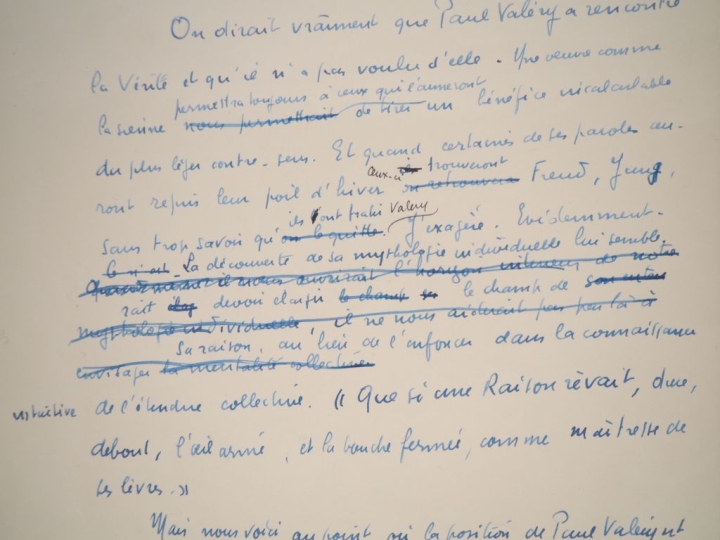 On dirait vraiment que Paul Valéry a rencontré
la Vérité et qu'il n'a pas voulu d'elle. Une œuvre comme
permettra toujours à ceux qui l'aimeront
la sienne nous permettrait de tirer un bénéfice incalculable
du plus léger contre-sens. Et quand certaines de ses paroles au-
ceux-ci trouveront
ront repris leur poil d'hiver on retrouvera Freud, Jung,
ils l'ont trahi Valéry
sans trop savoir qu'on le quitte. J'exagère. Evidemment.
La découverte de sa mythologie individuelle lui semble
Quand même il nous ouvrirait l'horizon intérieur de notre
rait devoir élargir le champ le champ de son
mythologie individuelle, il ne nous aiderait pas par là à
sa raison, au lieu de l'enfoncer dans la connaissance
envisager la mentalité collective
intuitive de l'étendue collective. « Que si une Raison rêvait, dure,
debout, l'œil armé, et la bouche fermée, comme maîtresse de
ses lèvres. »
Mais nous voici au point où la position de Paul Valéry